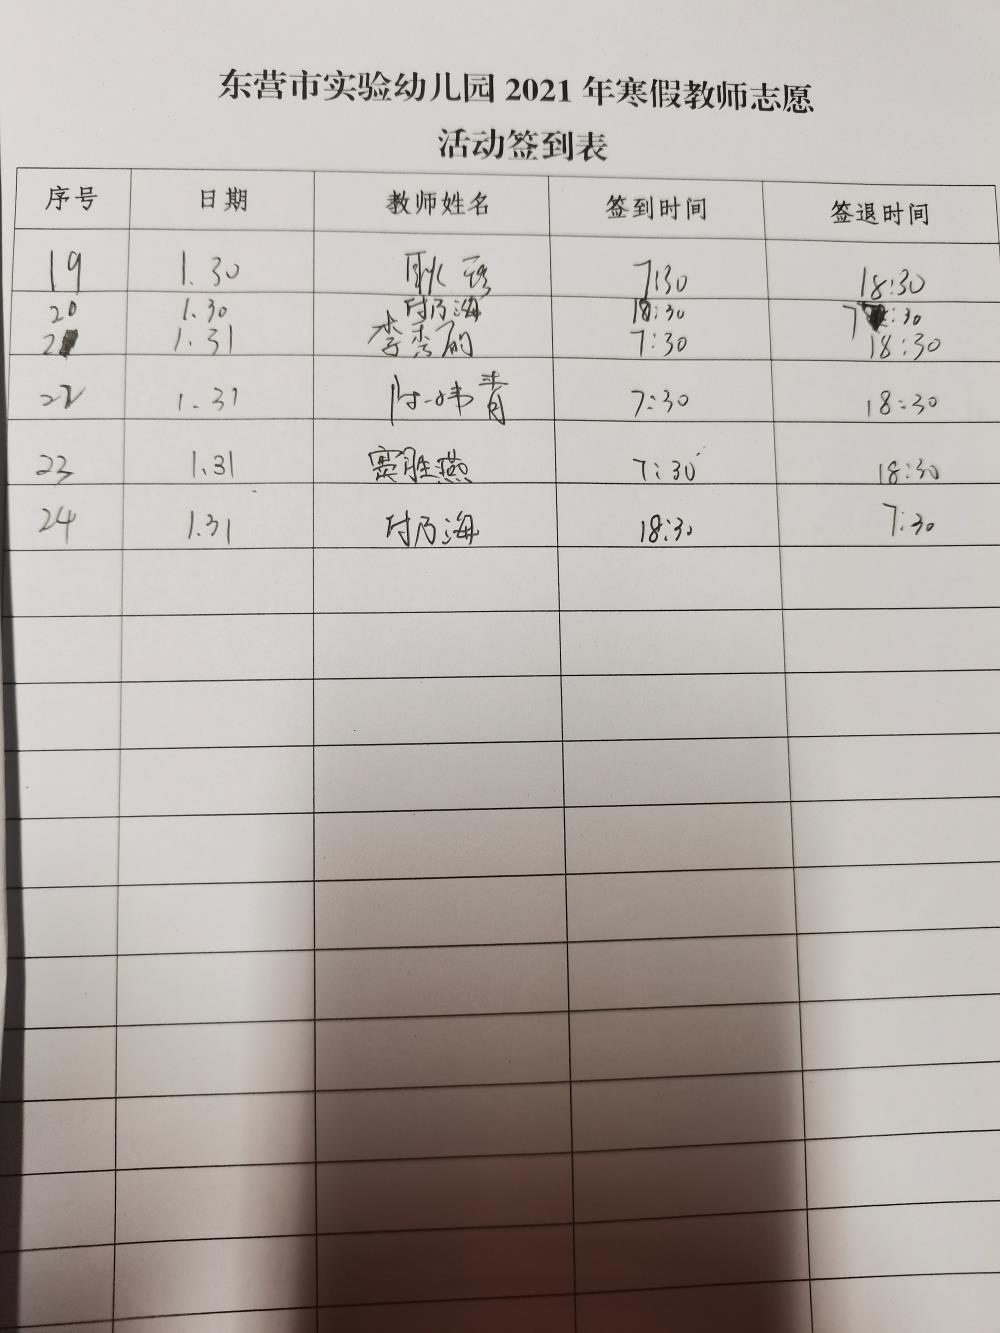 东营市实验幼儿园 2021 年寒假教师志愿
活动签到表
序号 日期 教师姓名 签到时间 签退时间
19 1.30 耿 7:30 18:30
20 1.30 付乃海 18:30 7:30
21 1.31 李秀丽 7:30 18:30
22 1.31 青 7:30 18:30
23 1.31 窦胜燕 7:30 18:30
24 1.31 付乃海 18:30 7:30